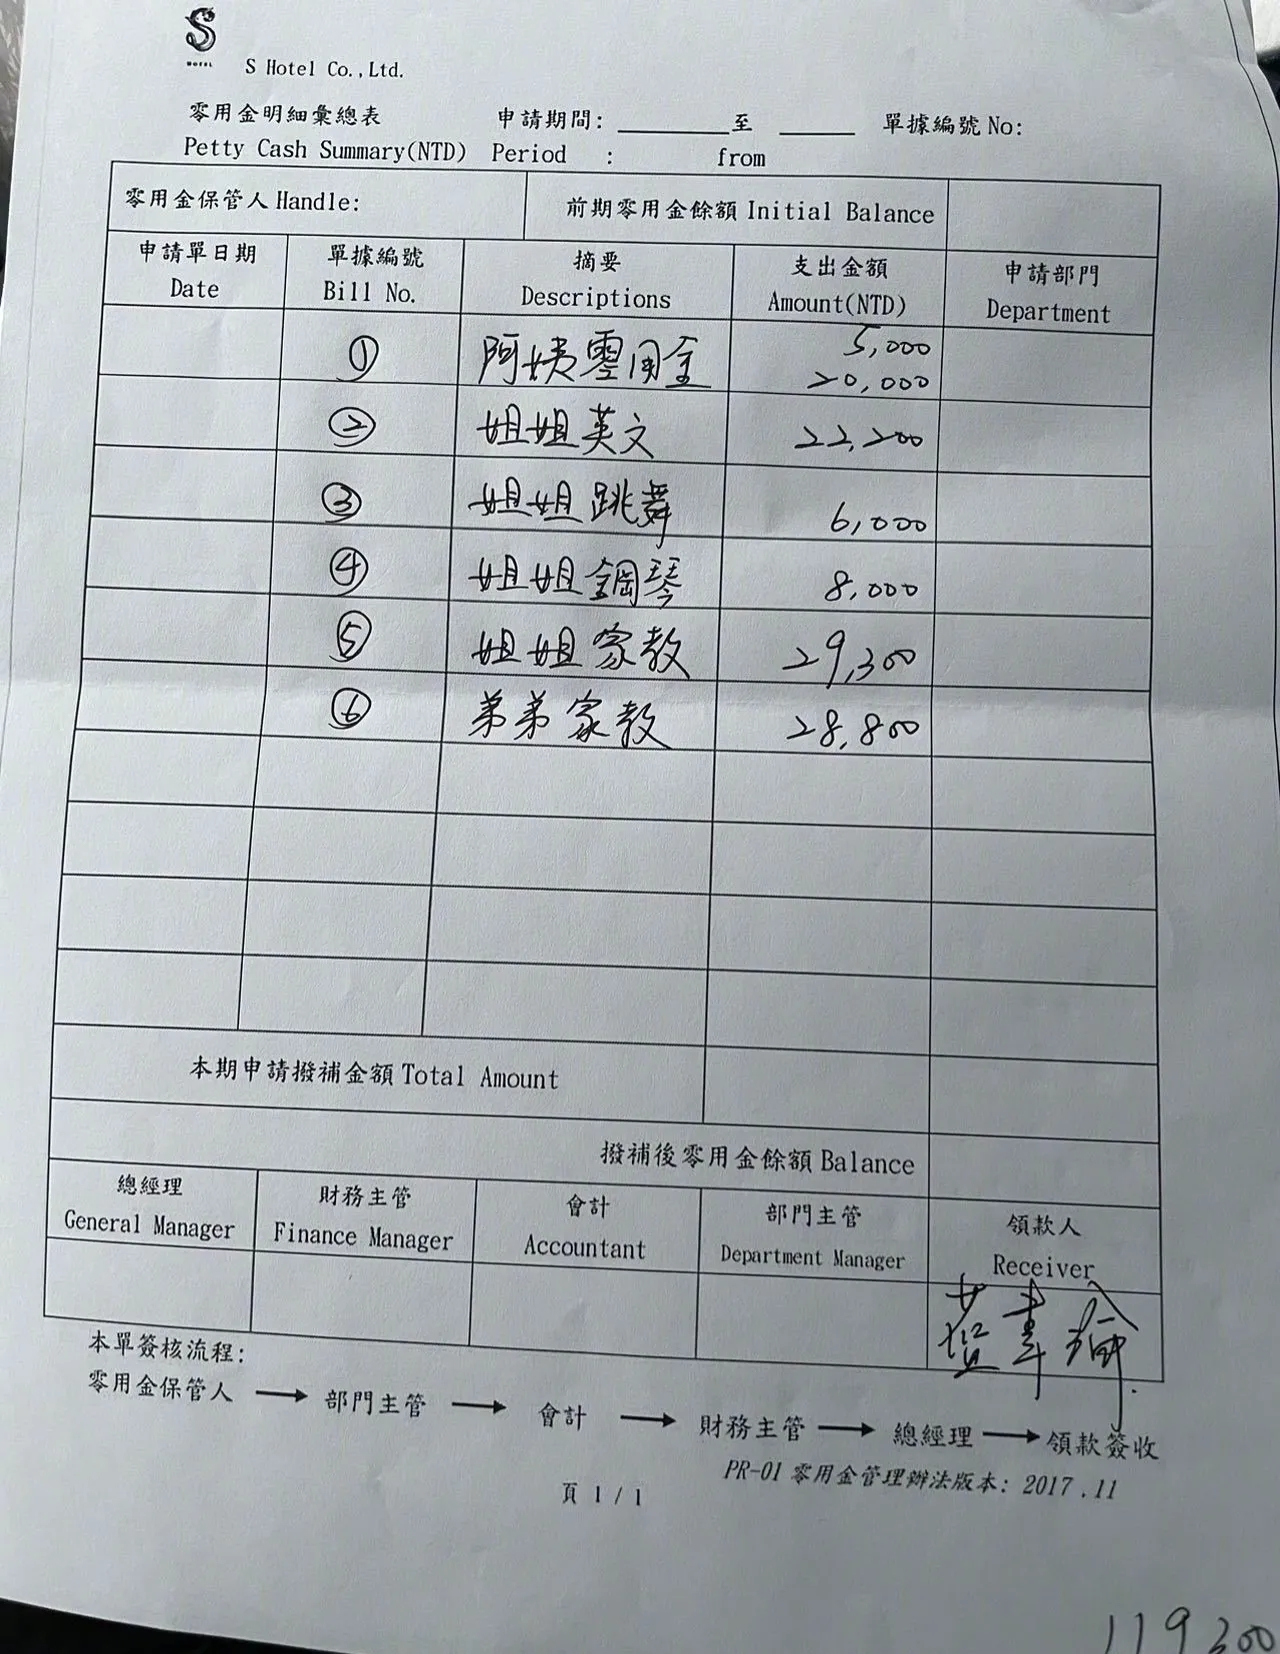 S
HOTEL
S Hotel Co.,Ltd.
零用金明細彙總表 申請期間: ________至 ______ 單據編號 No:
Petty Cash Summary(NTD) Period : from
零用金保管人 Handle: 前期零用金餘額 Initial Balance
申請單日期 單據編號 摘要 支出金額 申請部門
Date Bill No. Descriptions Amount(NTD) Department
① 阿姨零用金 5,000
20,000
② 姐姐英文 22,200
③ 姐姐跳舞 6,000
④ 姐姐鋼琴 8,000
⑤ 姐姐家教 29,300
⑥ 弟弟家教 28,800
本期申請撥補金額 Total Amount
撥補後零用金餘額 Balance
總經理 財務主管 會計 部門主管 領款人
General Manager Finance Manager Accountant Department Manager Receiver
本單簽核流程:
零用金保管人 → 部門主管 → 會計 → 財務主管 → 總經理 → 領款簽收
PR-01 零用金管理辦法版本: 2017 .11
頁 1 / 1
119300